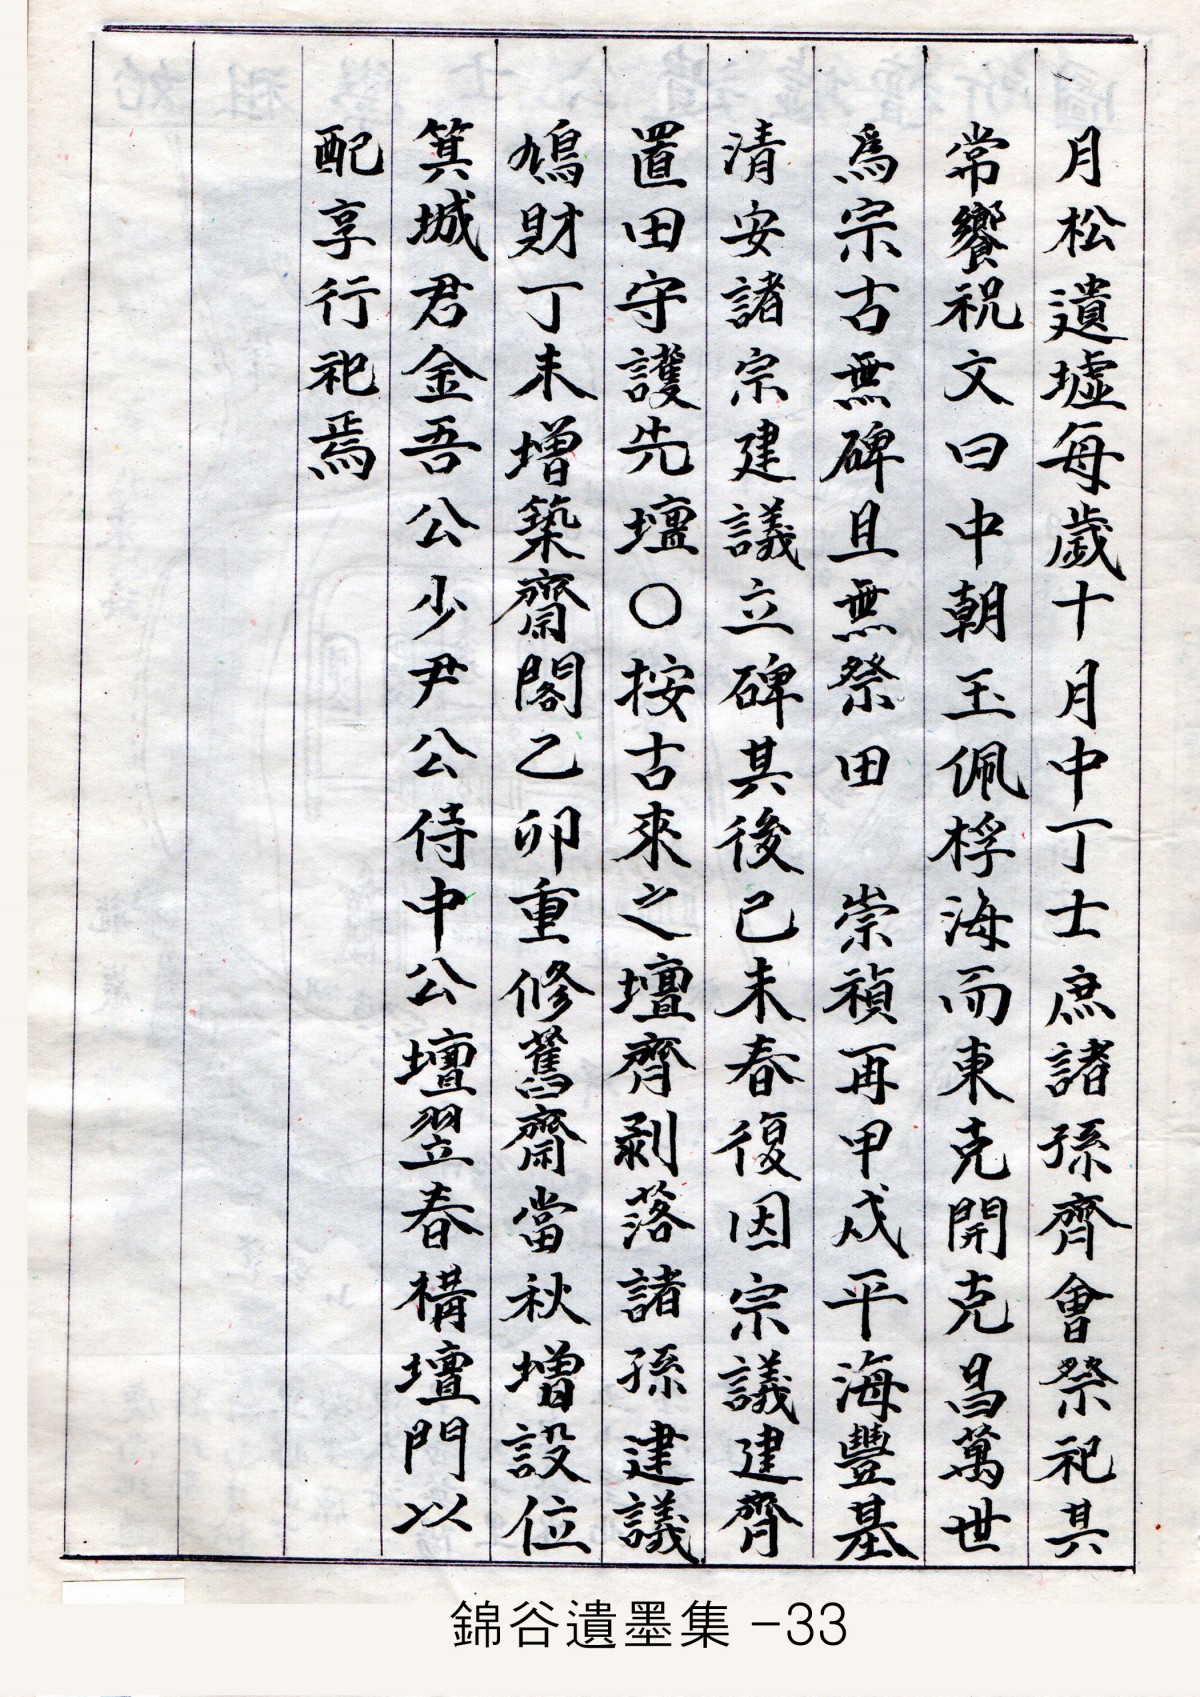 月松遺墟每歲十月中丁士庶諸孫齊會祭祀其
常饗祝文曰中朝玉佩桴海而東克開克昌萬世
爲宗古無碑且無祭田　崇禎再甲戌平海豐基
清安諸宗建議立碑其後己未春復因宗議建齊
置田守護先壇○按古來之壇齊剥落諸孫建議
鳩財丁未增築齋閣乙卯重修舊齋當秋增設位
箕城君金吾公少尹公侍中公壇翌春構壇門以
配享行祀焉
錦谷遺墨集 -33